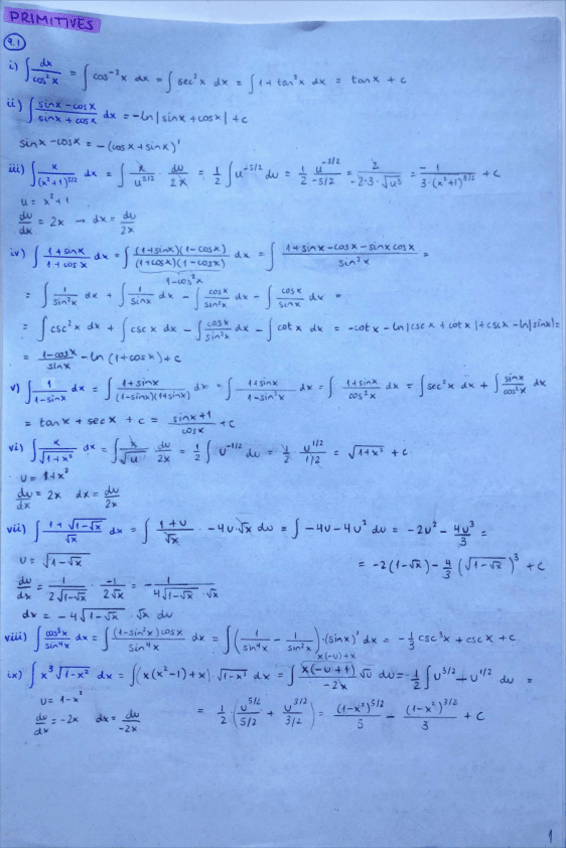 PRIMITIVES
9.1
i) ∫ dx/cos²x = ∫ cos⁻²x dx = ∫ sec²x dx = ∫ 1 + tan²x dx = tanx + c
ii) ∫ (sinx - cosx)/(sinx + cosx) dx = -ln|sinx + cosx| + c
sinx - cosx = -(cosx + sinx)'
iii) ∫ x/(x²+1)^(5/2) dx = ∫ x/u^(5/2) · du/2x = 1/2 ∫ u^(-5/2) du = 1/2 u^(-3/2)/(-3/2) = 2/(-2·3·√u³) = -1/(3·(x²+1)^(3/2)) + c
u = x²+1
du/dx = 2x → dx = du/2x
iv) ∫ (1+sinx)/(1+cosx) dx = ∫ (1+sinx)(1-cosx)/((1+cosx)(1-cosx)) dx = ∫ (1+sinx-cosx-sinx cosx)/sin²x =
1-cos²x
= ∫ 1/sin²x dx + ∫ 1/sinx dx - ∫ cosx/sin²x dx - ∫ cosx/sinx dx =
= ∫ csc²x dx + ∫ cscx dx - ∫ cosx/sin²x dx - ∫ cotx dx = -cotx - ln|cscx + cotx| + cscx - ln|sinx| =
= (1-cosx)/sinx - ln(1+cosx) + c
v) ∫ 1/(1-sinx) dx = ∫ (1+sinx)/((1-sinx)(1+sinx)) dx = ∫ (1+sinx)/(1-sin²x) dx = ∫ (1+sinx)/cos²x dx = ∫ sec²x dx + ∫ sinx/cos²x dx
= tanx + secx + c = (sinx+1)/cosx + c
vi) ∫ x/√(1+x²) dx = ∫ x/√u du/2x = 1/2 ∫ u^(-1/2) du = 1/2 · u^(1/2)/(1/2) = √(1+x²) + c
u = 1+x²
du/dx = 2x dx = du/2x
vii) ∫ (1+√(1-√x))/√x dx = ∫ (1+u)/√x · -4u·√x du = ∫ -4u - 4u² du = -2u² - 4u³/3 =
u = √(1-√x) = -2(1-√x) - 4/3 (√(1-√x))³ + c
du/dx = 1/(2√(1-√x)) · -1/(2√x) = -1/(4√(1-√x) · √x)
dx = -4√(1-√x) · √x du
viii) ∫ cos³x/sin⁴x dx = ∫ (1-sin²x)cosx/sin⁴x dx = ∫ (1/sin⁴x - 1/sin²x)·(sinx)' dx = -1/3 csc³x + cscx + c
x(-u)+x
ix) ∫ x³√(1-x²) dx = ∫ (x(x²-1)+x)·√(1-x²) dx = ∫ x(-u+1)/(-2x) √u du = -1/2 ∫ u^(3/2) + u^(1/2) du =
u = 1-x²
du/dx = -2x dx = du/-2x
= 1/2 · (u^(5/2)/(5/2) + u^(3/2)/(3/2)) = (1-x²)^(5/2)/5 - (1-x²)^(3/2)/3 + c
1